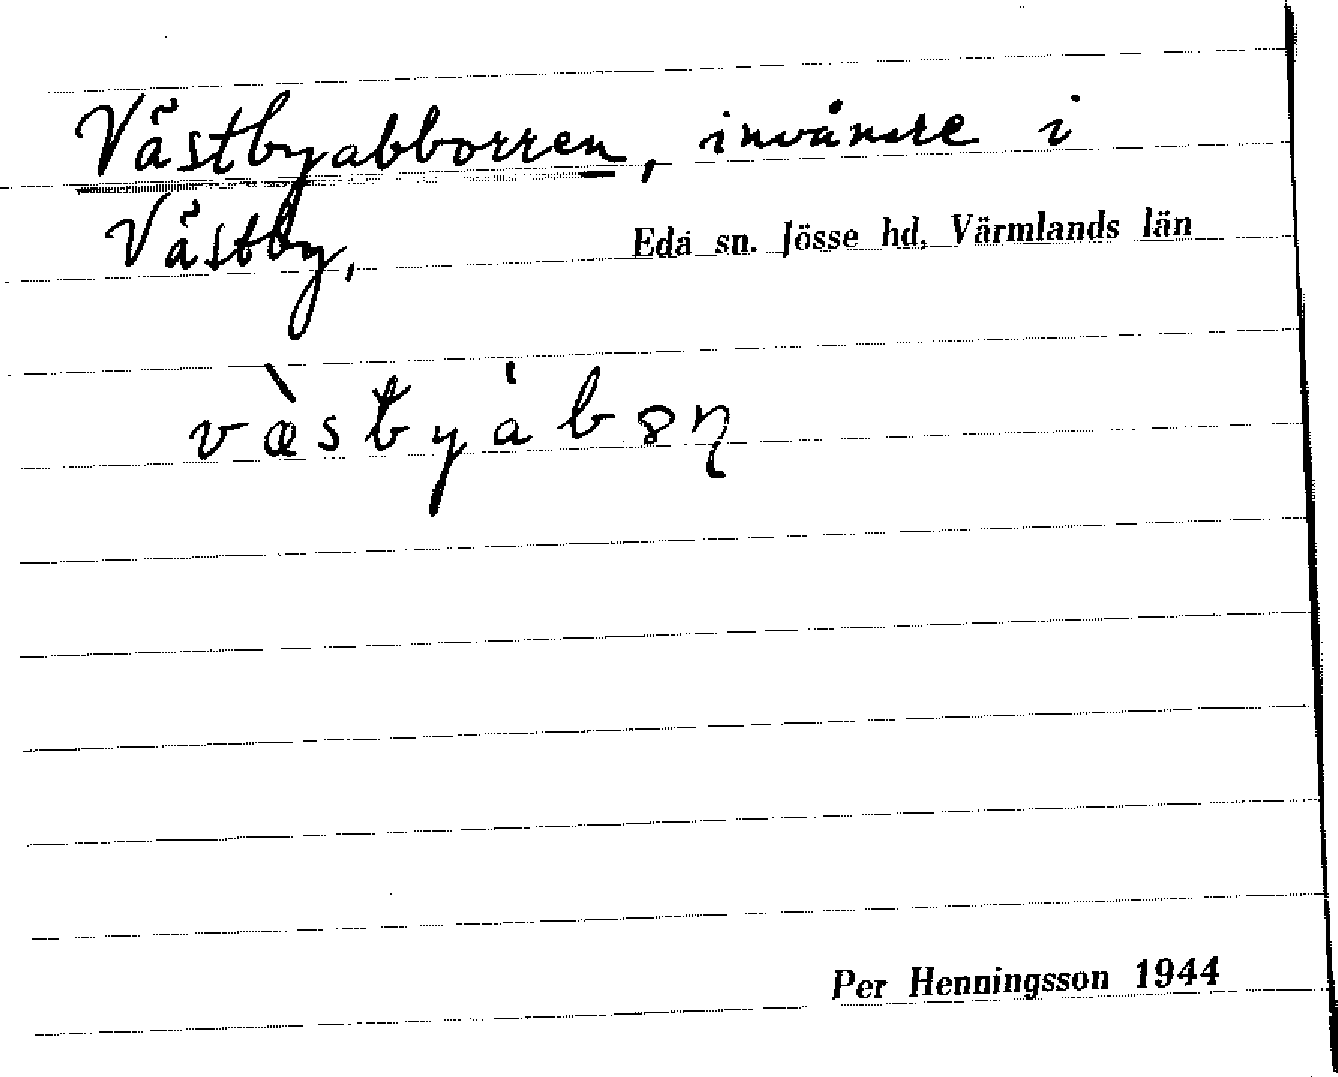 Västbyabborren, invånare i
Västby,
Eda sn. Jösse hd, Värmlands län
væ̀stbyábȣn̥
Per Henningsson 1944